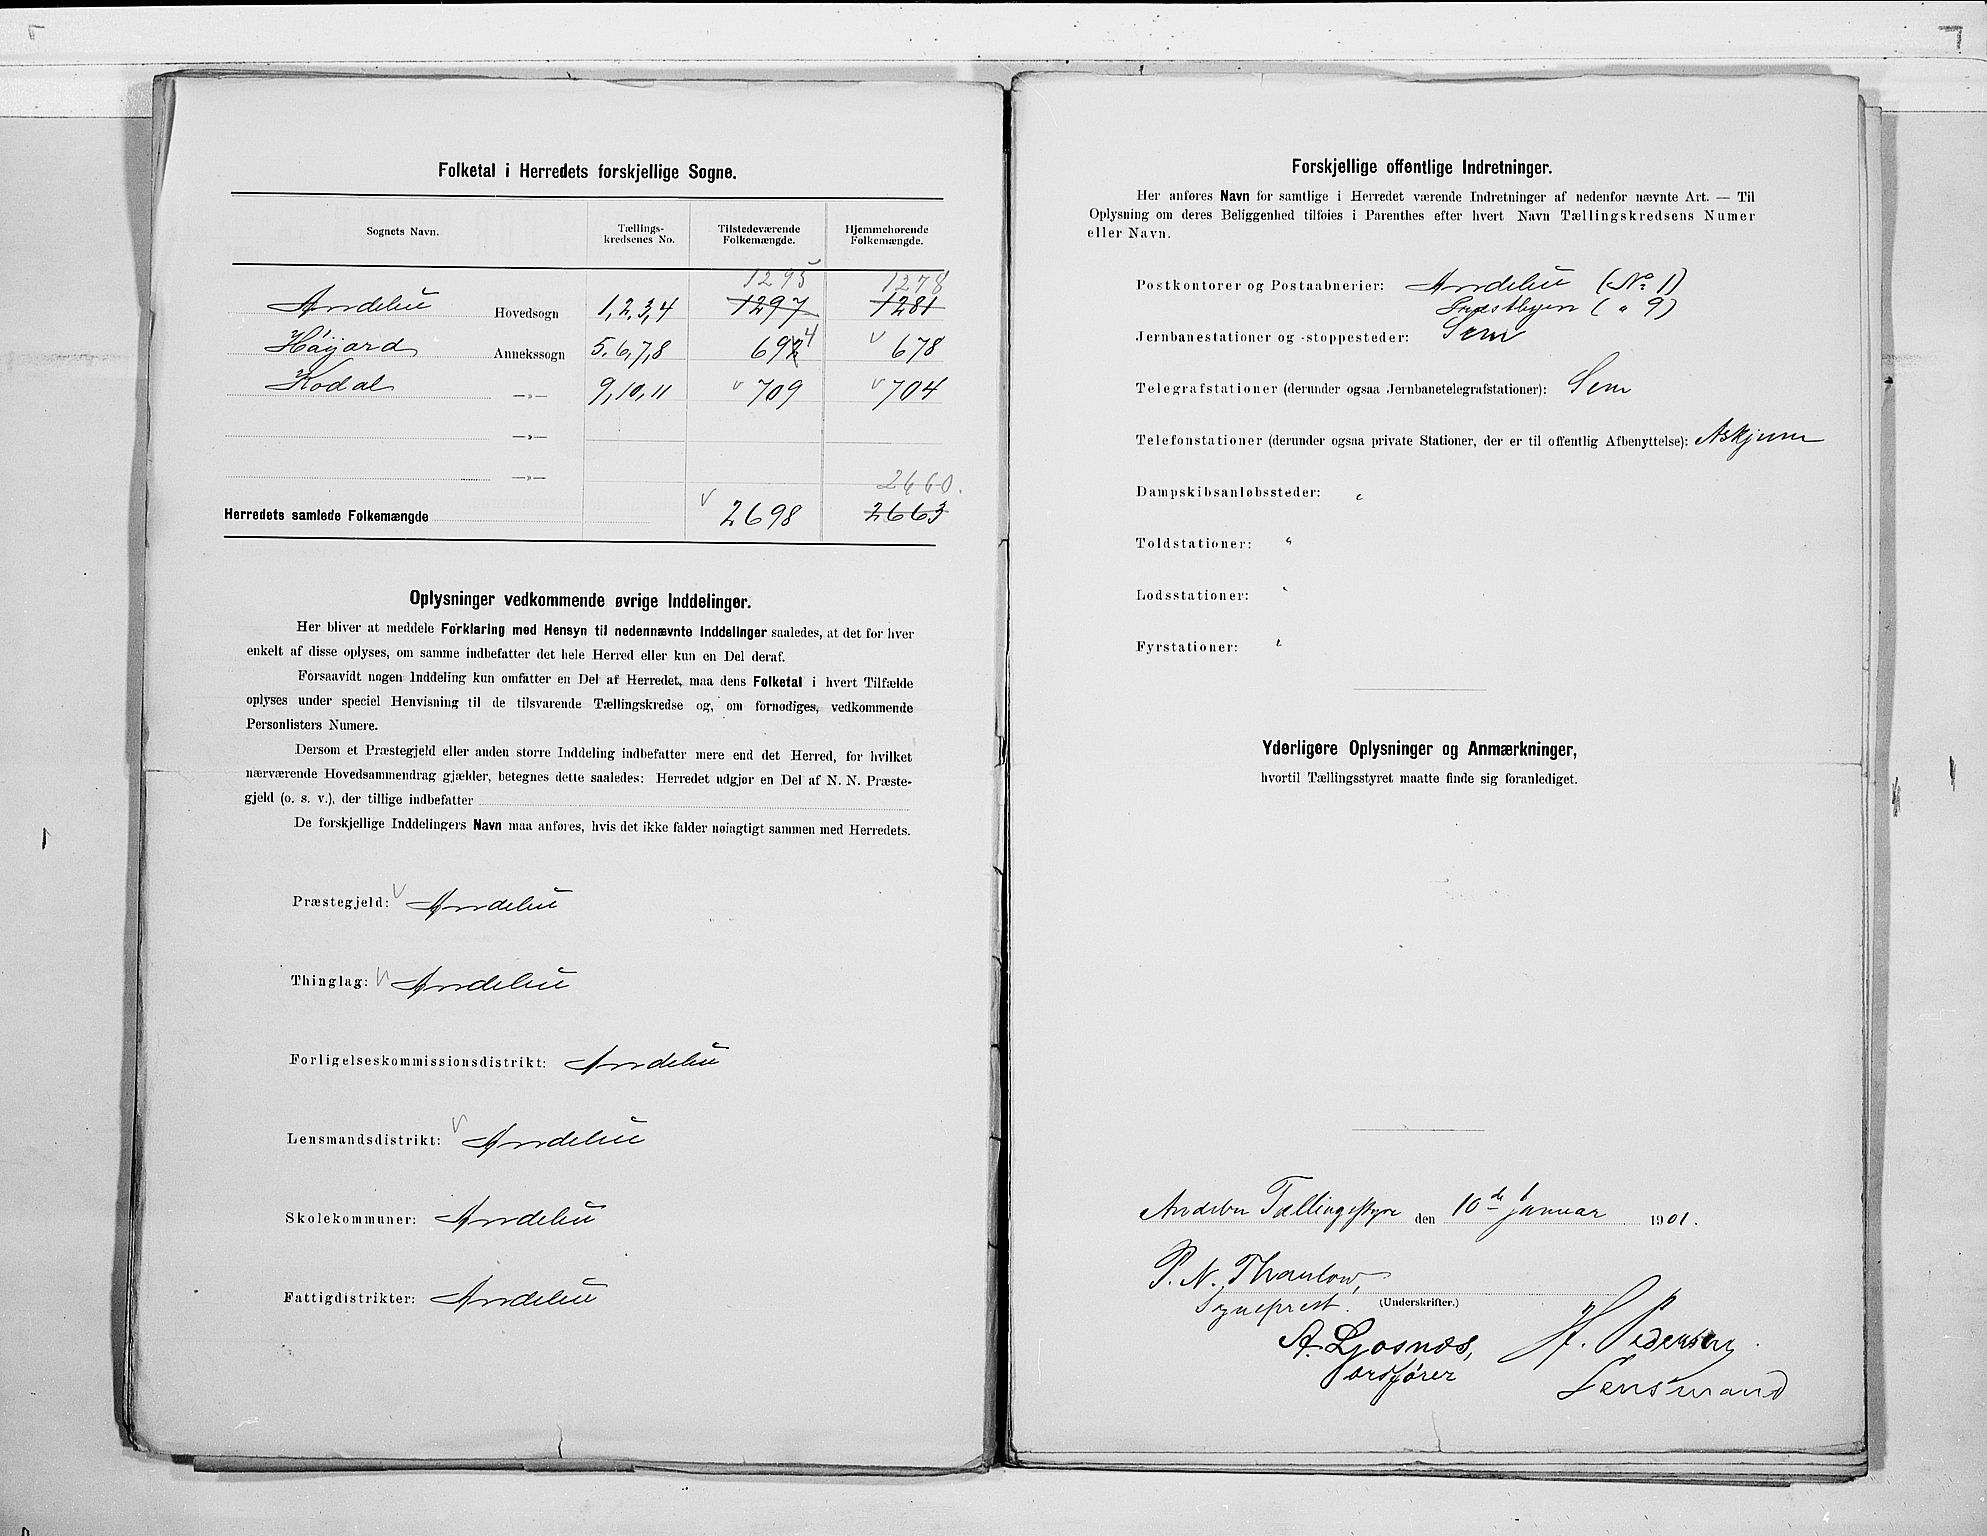 Folketal i Herredets forskjellige Sogne.
Sognets Navn. Tællings-kredsenes No. Tilstedeværende Folkemængde. Hjemmehørende Folkemængde.
1295 1278
Andebu Hovedsogn 1,2,3,4 1297 1281
Høijord Annekssogn 5,6,7,8 694 678
Kodal —»— 9,10,11 709 704
—»—
—»— 2660.
Herredets samlede Folkemængde 2698 2663
Oplysninger vedkommende øvrige Inddelinger.
Her bliver at meddele Forklaring med Hensyn til nedennævnte Inddelinger saaledes, at det for hver
enkelt af disse oplyses, om samme indbefatter det hele Herred eller kun en Del deraf.
Forsaavidt nogen Inddeling kun omfatter en Del af Herredet, maa dens Folketal i hvert Tilfælde
oplyses under speciel Henvisning til de tilsvarende Tællingskredse og, om fornødiges, vedkommende
Personlisters Numere.
Dersom et Præstegjeld eller anden større Inddeling indbefatter mere end det Herred, for hvilket
nærværende Hovedsammendrag gjælder, betegnes dette saaledes: Herredet udgjør en Del af N. N. Præste-
gjeld (o. s. v.), der tillige indbefatter
De forskjellige Inddelingers Navn maa anføres, hvis det ikke falder nøiagtigt sammen med Herredets.
Præstegjeld: Andebu
Thinglag: Andebu
Forligelseskommissionsdistrikt: Andebu
Lensmandsdistrikt: Andebu
Skolekommuner: Andebu
Fattigdistrikter: Andebu
Forskjellige offentlige Indretninger.
Her anføres Navn for samtlige i Herredet værende Indretninger af nedenfor nævnte Art. — Til
Oplysning om deres Beliggenhed tilføies i Parenthes efter hvert Navn Tællingskredsens Numer
eller Navn.
Postkontorer og Postaabnerier: Andebu (No 1)
Prestbyen ( " 9)
Jernbanestationer og -stoppesteder: Sem
Telegrafstationer (derunder ogsaa Jernbanetelegrafstationer): Sem
Telefonstationer (derunder ogsaa private Stationer, der er til offentlig Afbenyttelse): Askjum
Dampskibsanløbssteder: "
Toldstationer: "
Lodsstationer: "
Fyrstationer: "
Yderligere Oplysninger og Anmærkninger,
hvortil Tællingsstyret maatte finde sig foranlediget.
Andebu Tællingsstyre den 10de Januar 1901.
P. N. Thaulow,
Sogneprest. (Underskrifter.)
A. Ljosnæs, H. Pedersen
Ordfører Lensmand